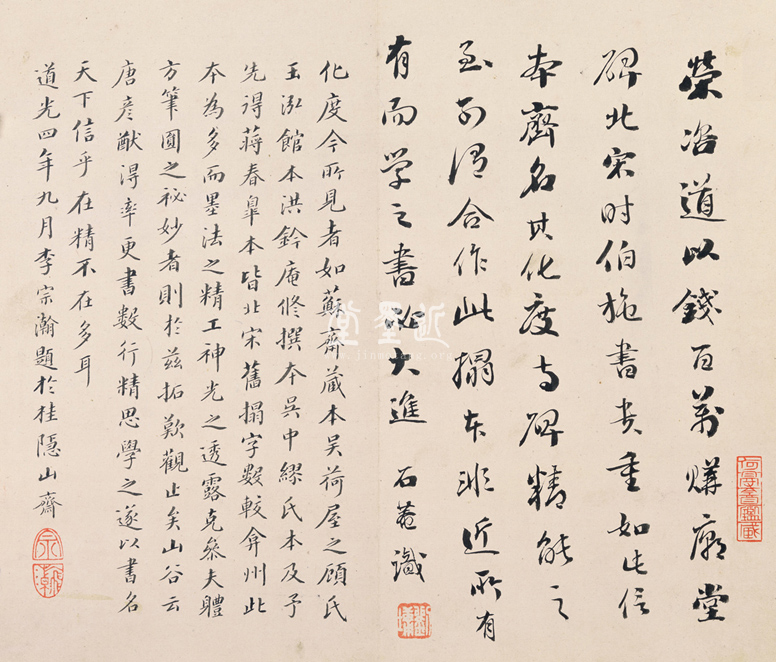 榮咨道以錢百萬購廟堂
碑北宋时伯施書貴重如此信
本齊名其化度寺碑精能之
至可謂合作此搨本非近所有
有而学之書必大進 石菴識
化度今所見者如蘇齋蔵本吴荷屋之顧氏
玉泓館本洪鈐庵修撰本吴中繆氏本及予
先得蒋春皐本皆北宋舊搨字數較弇州此
本為多而墨法之精工神光之透露克叅夫體
方筆圓之祕妙者則於兹拓歎觀止矣山谷云
唐彦猷得率更書数行精思學之遂以書名
天下信乎在精不在多耳
道光四年九月李宗瀚題於桂隱山齋
近墨堂
www.jinmotang.org